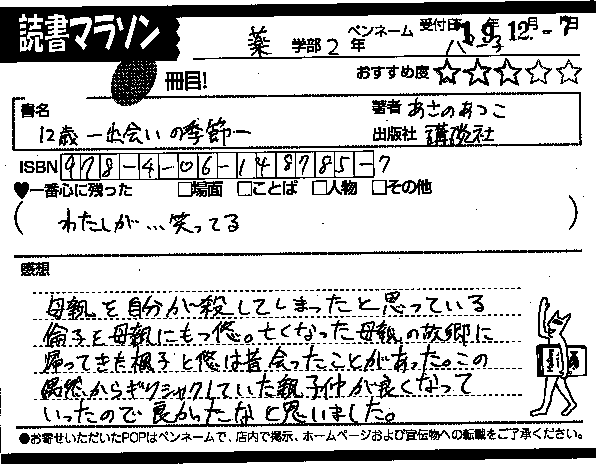 読書マラソン
薬 学部 2 年 ペンネーム 受付日 19年 12月 -7日
冊目! おすすめ度 ☆☆☆☆☆
書名 著者 あさのあつこ
12歳 ー出会いの季節ー 出版社 講談社
ISBN 978-4-06-148785-7
♥一番心に残った □場面 □ことば □人物 □その他
( わたしが…笑ってる )
感想
母親を自分が殺してしまったと思っている
倫子を母親にもつ悠。亡くなった母親の故郷に
帰ってきた楓子と悠は昔会ったことがあった。この
偶然からギクシャクしていた親子仲が良くなって
いったので良かったなと思いました。
●お寄せいただいたPOPはペンネームで、店内で掲示、ホームページおよび宣伝物への転載をご了承ください。